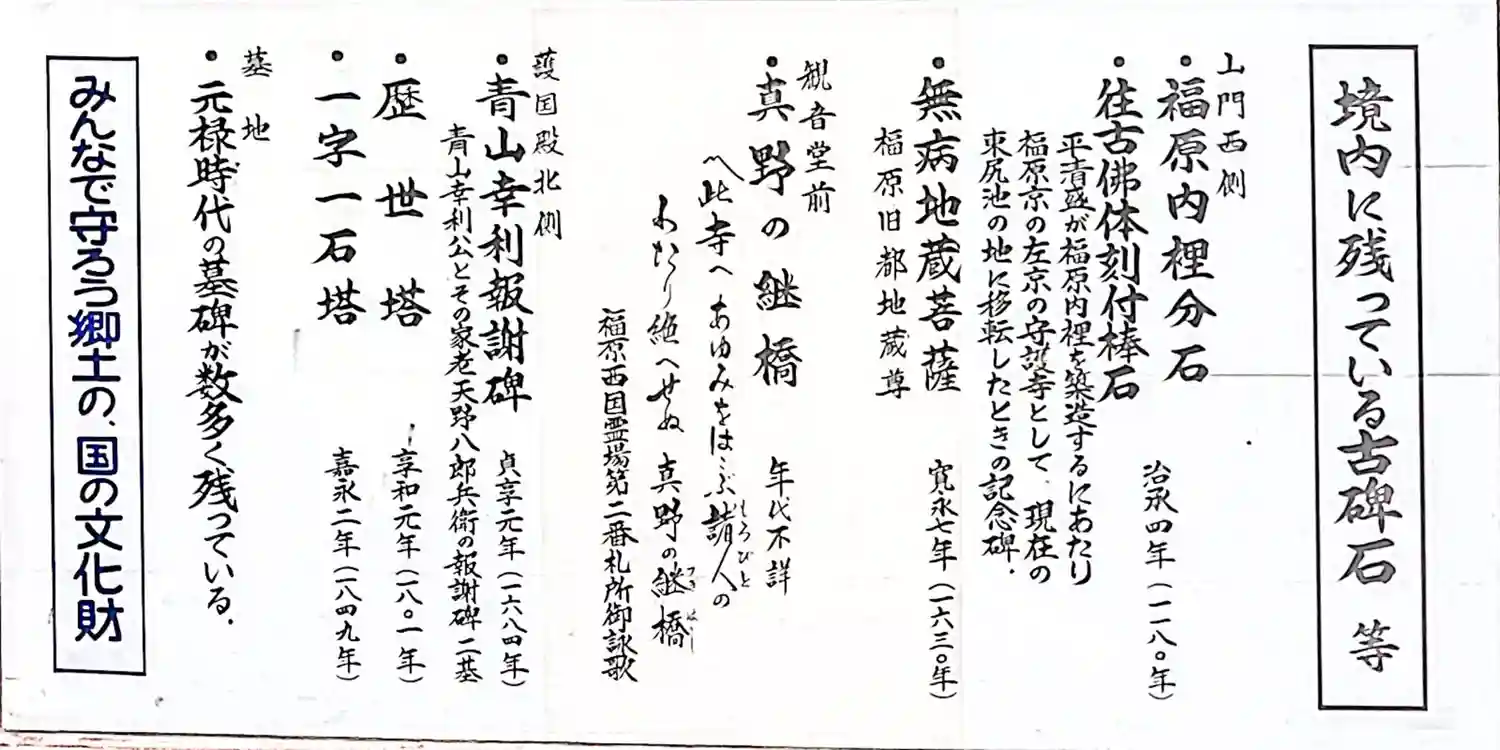 境内に残っている古碑石 等
山門西側
・福原内裡分石 治承四年(一一八〇年)
・往古佛体刻付棒石
平清盛が福原内裡を築造するにあたり
福原京の左京の守護寺として、現在の
東尻池の地に移転したときの記念碑.
・無病地蔵菩薩 寛永七年(一六三〇年)
福原旧都地蔵尊
観音堂前
・真野の継橋 年代不詳
〽此寺へ あゆみをはこぶ 諸人の
もろびと
わたり絶へせぬ 真野の継橋
つぎ はし
福原西国霊場第二番札所御詠歌
護国殿北側
・青山幸利報謝碑 貞享元年(一六八四年)
青山幸利公とその家老天野八郎兵衛の報謝碑二基
・歴世塔 享和元年(一八〇一年)
・一字一石塔 嘉永二年(一八四九年)
墓地
・元禄時代の墓碑が数多く残っている.
みんなで守ろう郷土の、国の文化財